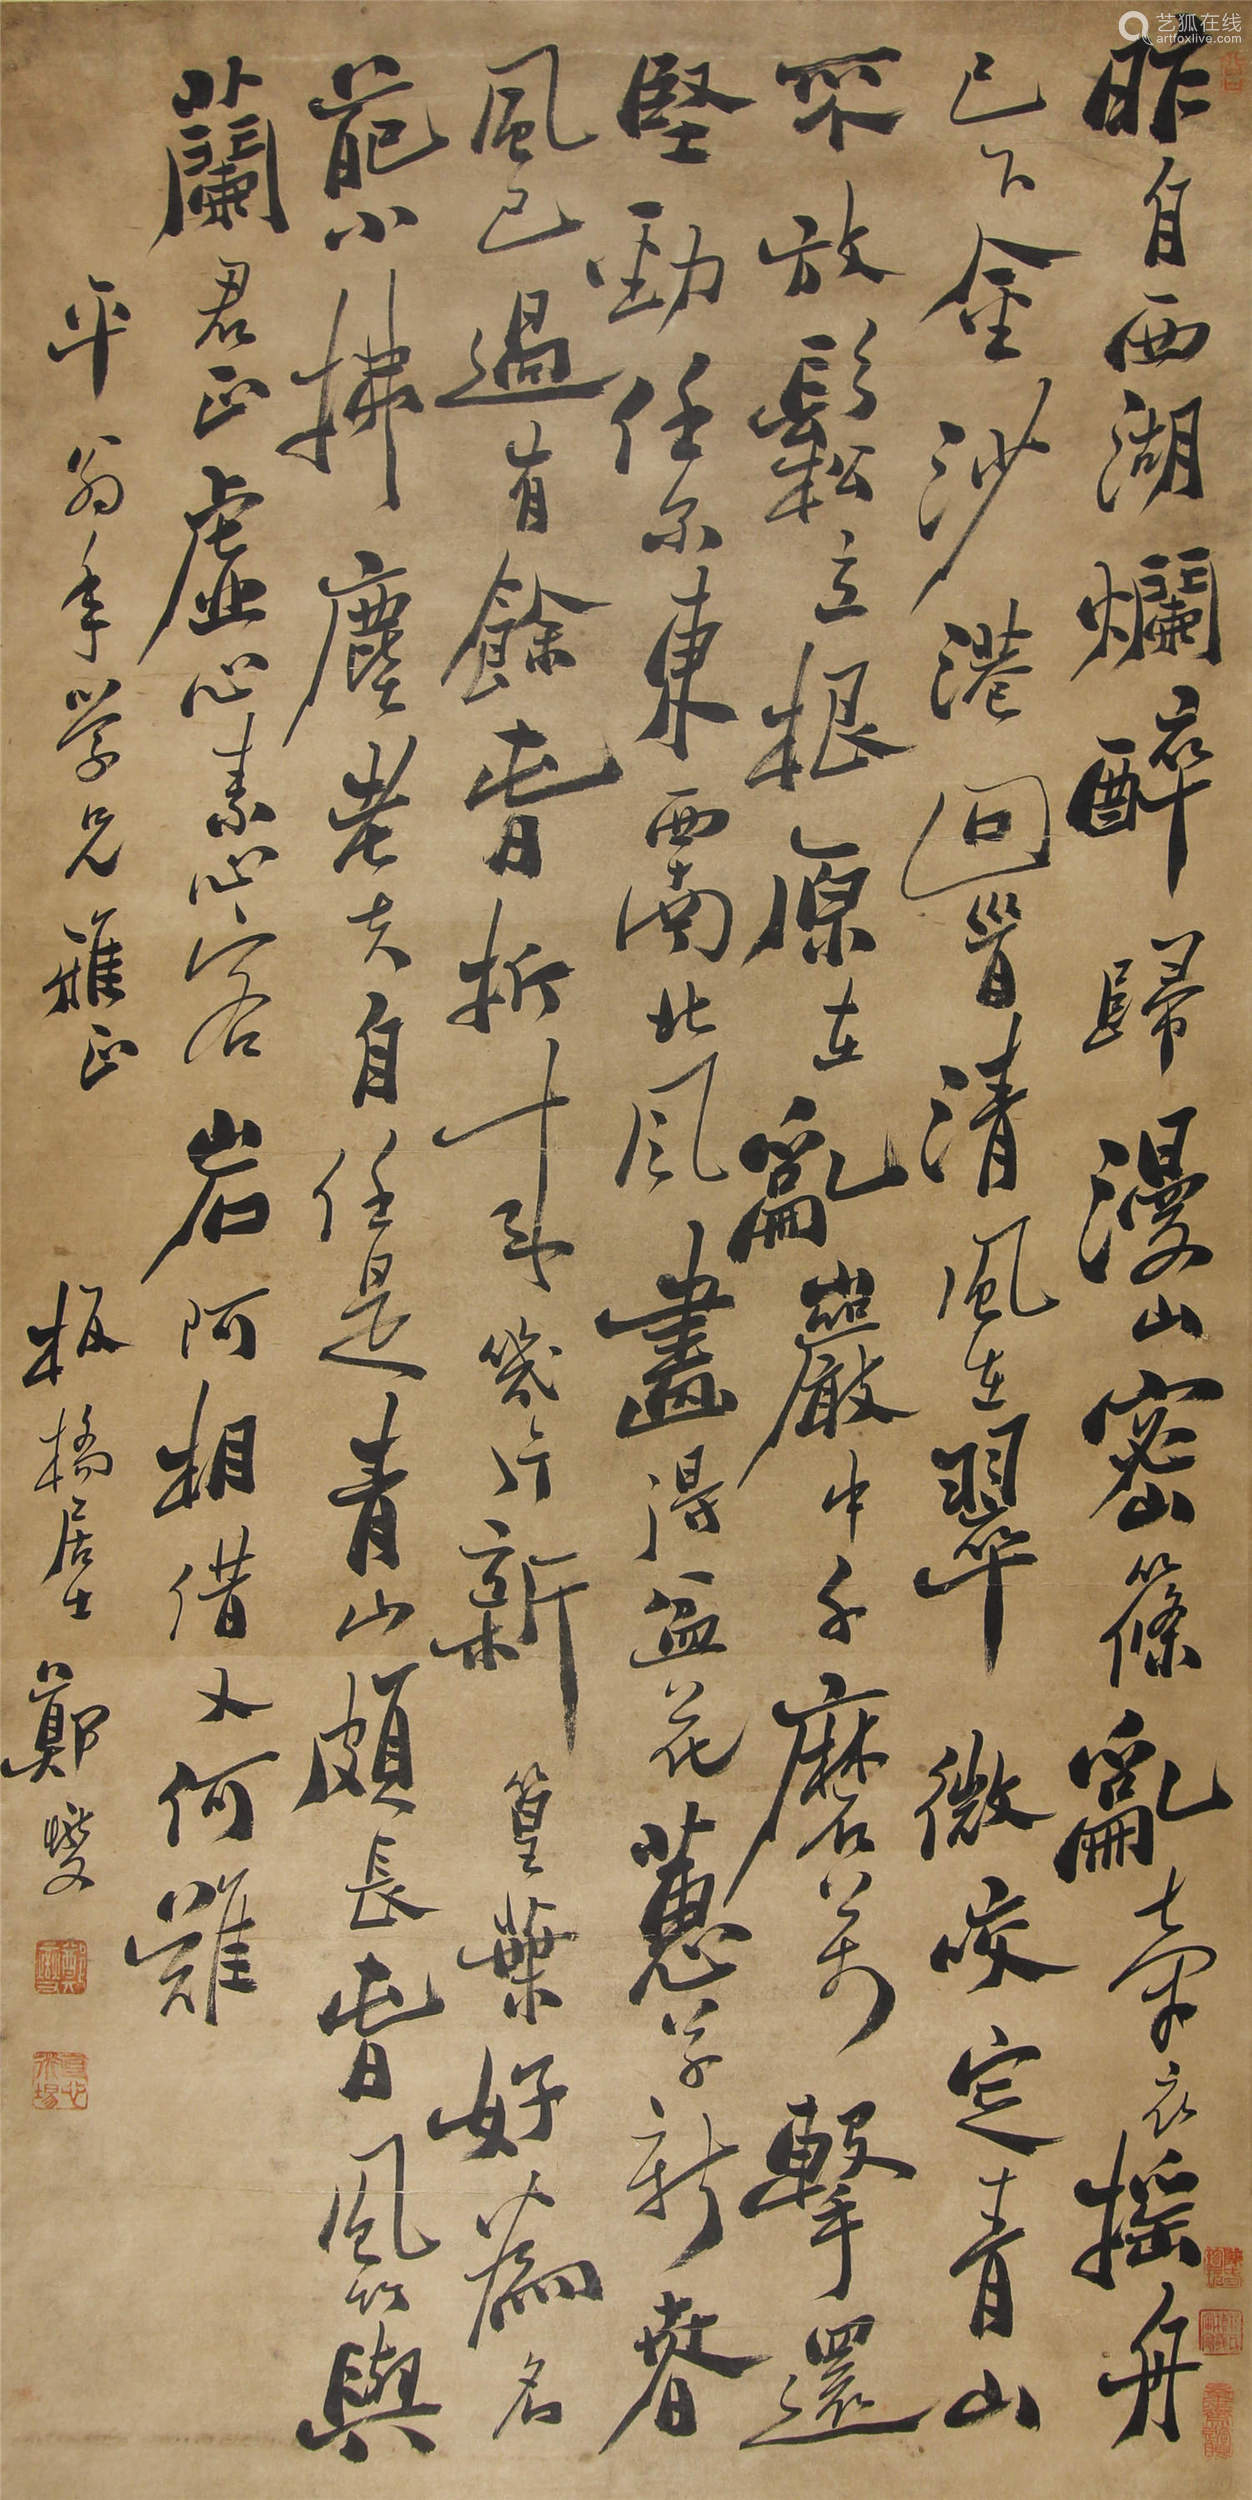 昨自西湖爛醉歸漫山密篠亂牽衣搖舟
已下金沙港回首清風在翠微咬定青山
不放鬆立根原在亂巖中千磨萬擊還
堅勁任尔東西南北風畫得盆花蕙草新春
風已過有餘春折斗筲片新篁葉好為名
葩小拂塵老夫自任是青山頗長春風竹與
蘭君正虛心素心客岩阿相借又何難
平翁年学兄雅正
板橋居士鄭燮
艺狐在线
artfoxlive.com